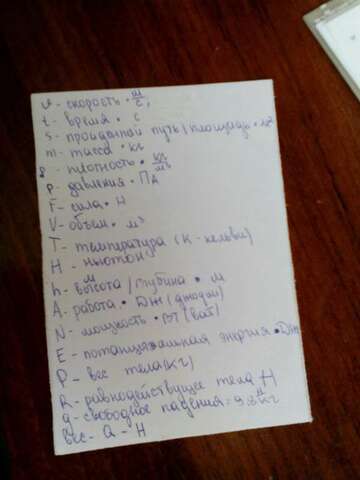 v - скорость • м/с,
t - время • с
s - пройденный путь / площадь • м²
m - масса • кг
ρ - плотность • кг/м³
p - давления • ПА
F - сила • Н
V - объем • м³
T - температура (К - кельви)
H - ньютон
h - высота / глубина • м
A - работа • Дж (джоули)
N - мощность • Вт (ват)
E - потанцяальная энергия • Дж
P - вес тела (кг)
R - равнодействущее тела Н
g - свободное падения = 9.8 Н/кг
вес - Q - Н